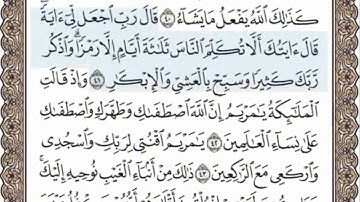 كَذَٰلِكَ ٱللَّهُ يَفْعَلُ مَا يَشَآءُ ٤٠ قَالَ رَبِّ ٱجْعَل لِّىٓ ءَايَةًۖ
قَالَ ءَايَتُكَ أَلَّا تُكَلِّمَ ٱلنَّاسَ ثَلَٰثَةَ أَيَّامٍ إِلَّا رَمْزًاۗ وَٱذْكُر
رَّبَّكَ كَثِيرًا وَسَبِّحْ بِٱلْعَشِىِّ وَٱلْإِبْكَٰرِ ٤١ وَإِذْ قَالَتِ
ٱلْمَلَٰٓئِكَةُ يَٰمَرْيَمُ إِنَّ ٱللَّهَ ٱصْطَفَىٰكِ وَطَهَّرَكِ وَٱصْطَفَىٰكِ
عَلَىٰ نِسَآءِ ٱلْعَٰلَمِينَ ٤٢ يَٰمَرْيَمُ ٱقْنُتِى لِرَبِّكِ وَٱسْجُدِى
وَٱرْكَعِى مَعَ ٱلرَّٰكِعِينَ ٤٣ ذَٰلِكَ مِنْ أَنۢبَآءِ ٱلْغَيْبِ نُوحِيهِ إِلَيْكَۚ